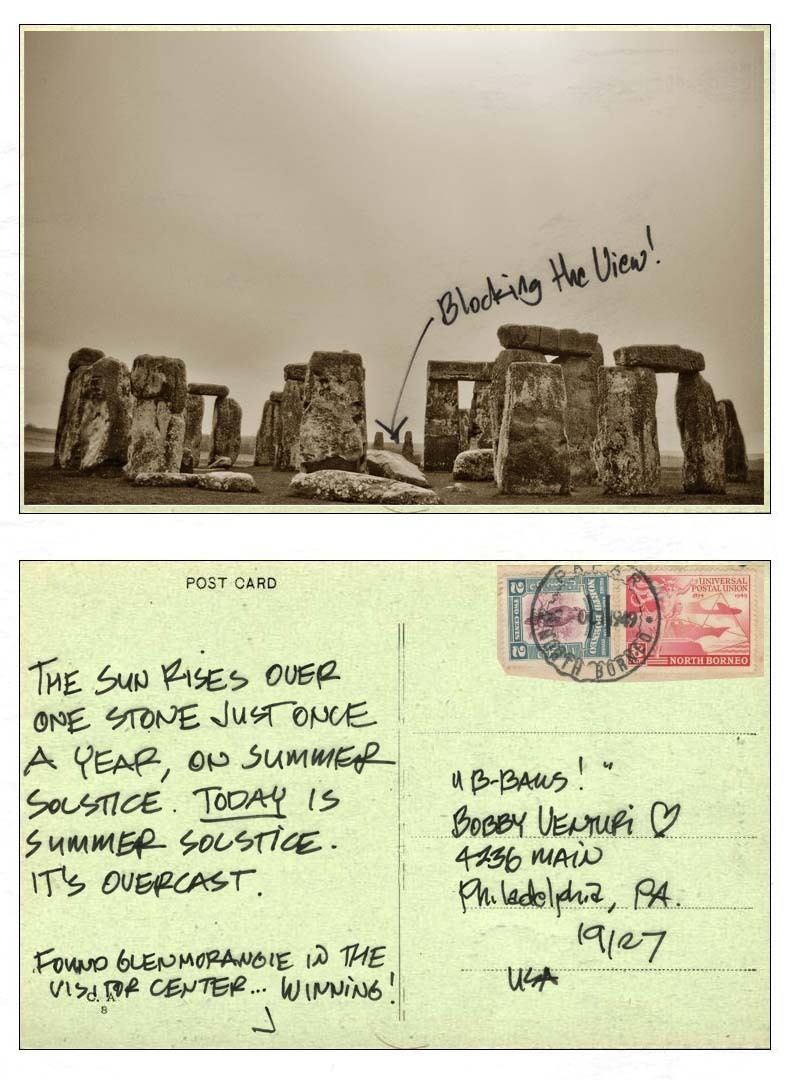 Blocking the View!
POST CARD
THE SUN RISES OVER
ONE STONE JUST ONCE
A YEAR, ON SUMMER
SOLSTICE. TODAY IS
SUMMER SOLSTICE.
IT'S OVERCAST.
FOUND GLENMORANGIE IN THE
VISITOR CENTER... WINNING!
J
C. A
8
2
TWO CENTS
2
NORTH BORNEO
UNIVERSAL
POSTAL UNION
1874 1949
NORTH BORNEO
1949
NORTH BORNEO
"B-BALLS!"
BOBBY VENTURI ♡
4236 MAIN
Philadelphia, PA.
19127
USA